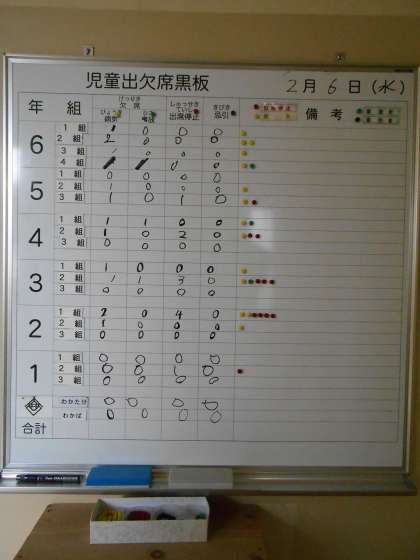 児童出欠席黒板 2月6日(水)
けっせき しゅっせき ていし きびき
年 組 欠席 出席停止 忌引 備考
びょうき じこ
病気 事故
6 1組 1 0 0 0
2組 2 0 0 0
3組 1 0 0 0
4組 0 0
5 1組 0 0 0 0
2組 1 0 0 0
3組 1 0 1 0
4 1組 1 1 0 0
2組 1 0 2 0
3組 0 0 0 0
3 1組 1 0 0 0
2組 1 1 3 0
3組 0 0 0 0
2 1組 2 0 4 0
2組 1 0 0 0
3組 0 0 0 0
1 1組 0 0 0 0
2組 0 0 1 0
3組 0 0 0 0
わかたけ 0 0 0 0
わかば 0 0 0 0
合計